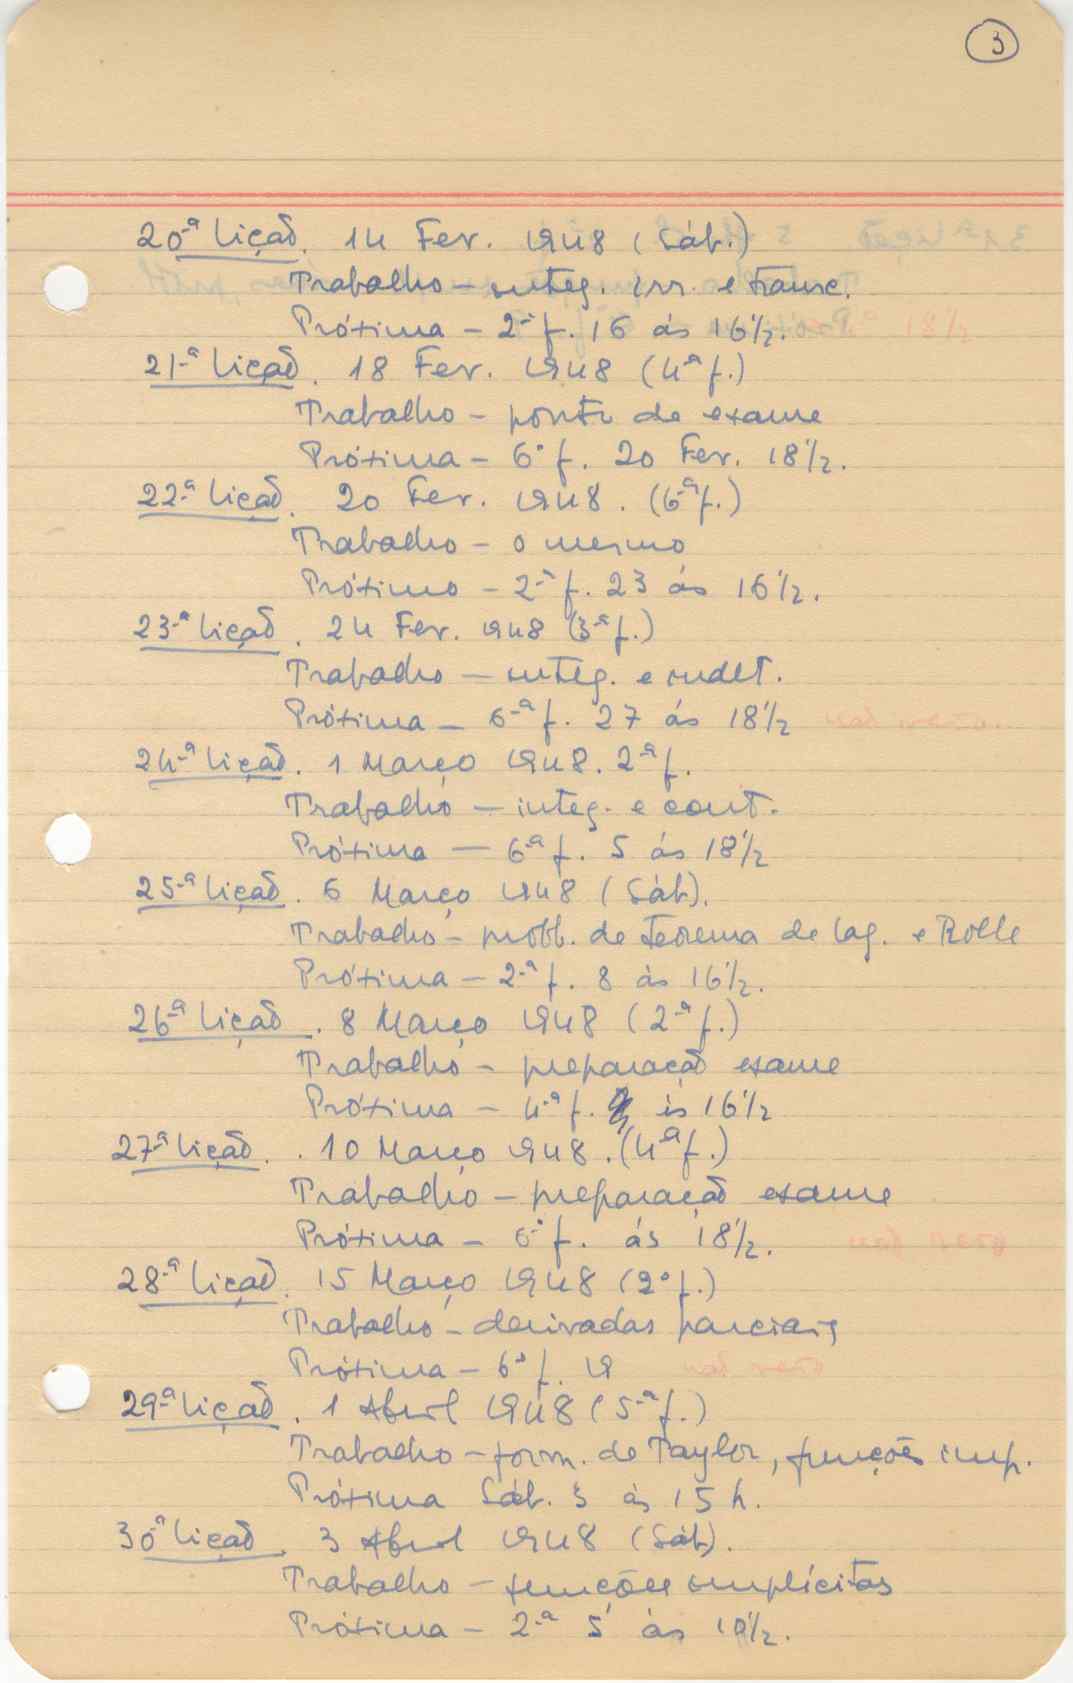 3
20-ª Lição. 14 Fev. 1948 (Sáb.)
Trabalho – integ. irr. e transc.
Próxima – 2-ª f. 16 ás 16½.
21-ª Lição. 18 Fev. 1948 (4-ª f.)
Trabalho – ponto de exame
Próxima – 6ª f. 20 Fev. 18½.
22-ª Lição. 20 Fev. 1948. (6-ª f.)
Trabalho – o mesmo
Próximo – 2-ª f. 23 ás 16½.
23-ª Lição. 24 Fev. 1948 (3-ª f.)
Trabalho – integ. e indet.
Próxima – 6-ª f. 27 ás 18½
24-ª Lição. 1 Março 1948. 2-ª f.
Trabalho – integ. e cont.
Próxima – 6-ª f. 5 ás 18½
25-ª Lição. 6 Março 1948 (Sáb).
Trabalho – probl. de teorema de Lag. e Rolle
Próxima – 2-ª f. 8 ás 16½.
26-ª Lição. 8 Março 1948 (2-ª f.)
Trabalho – preparação exame
Próxima – 4-ª f. ás 16½
27-ª Lição. . 10 Março 1948. (4-ª f.)
Trabalho – preparação exame
Próxima – 6ª f. ás 18½.
28-ª Lição. 15 Março 1948 (2ª f.)
Trabalho – derivadas parciais
Próxima – 6ª f. 19
29-ª Lição. 1 Abril 1948 (5-ª f.)
Trabalho – form. de Taylor, funções imp.
Próxima Sáb. 3 ás 15 h.
30ª Lição. 3 Abril 1948 (Sáb).
Trabalho – funções implícitas
Próxima – 2-ª 5 ás